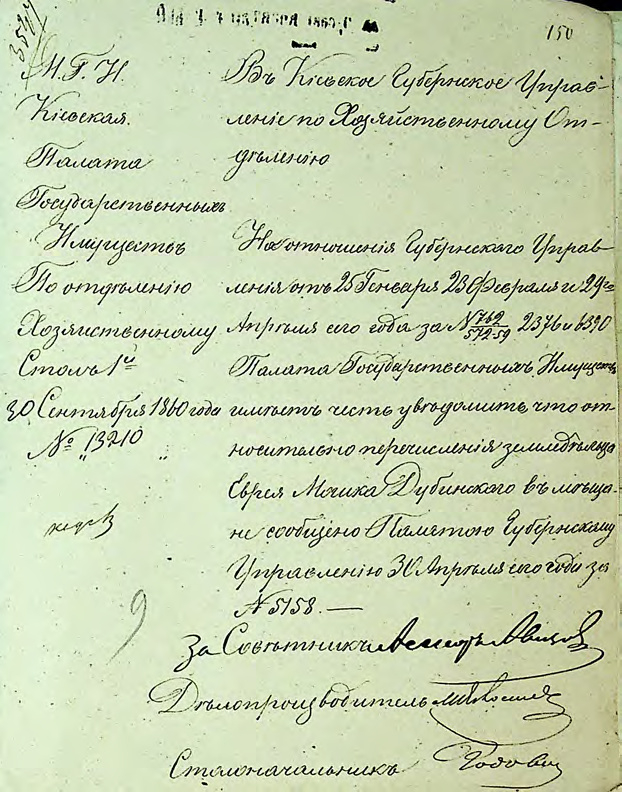 150
М. Г. И.
Кіевская
Палата
Государственныхъ
Имуществъ
По отдѣленію
Хозяйственному
Столъ 1й
30 Сентября 1860 года
№ 13210
Въ Кіевское Губернское Управ-
леніе по Хозяйственному От-
дѣленію
На отношенія Губернскаго Управ-
ленія отъ 25 Генваря 23 Февраля и 29го
Апрѣля сего года за № 762/572-59 2376 и 6390
Палата Государственныхъ Имуществъ
имѣетъ честь увѣдомить что от-
носительно перечисленія земледѣльца
Еврея Мошка Дубинскаго въ мѣща-
не сообщено Палатою Губернскому
Управленію 30 Апрѣля сего года за
№ 5158. —
За Совѣтника Ассесоръ
Дѣлопроизводитель
Столоначальникъ